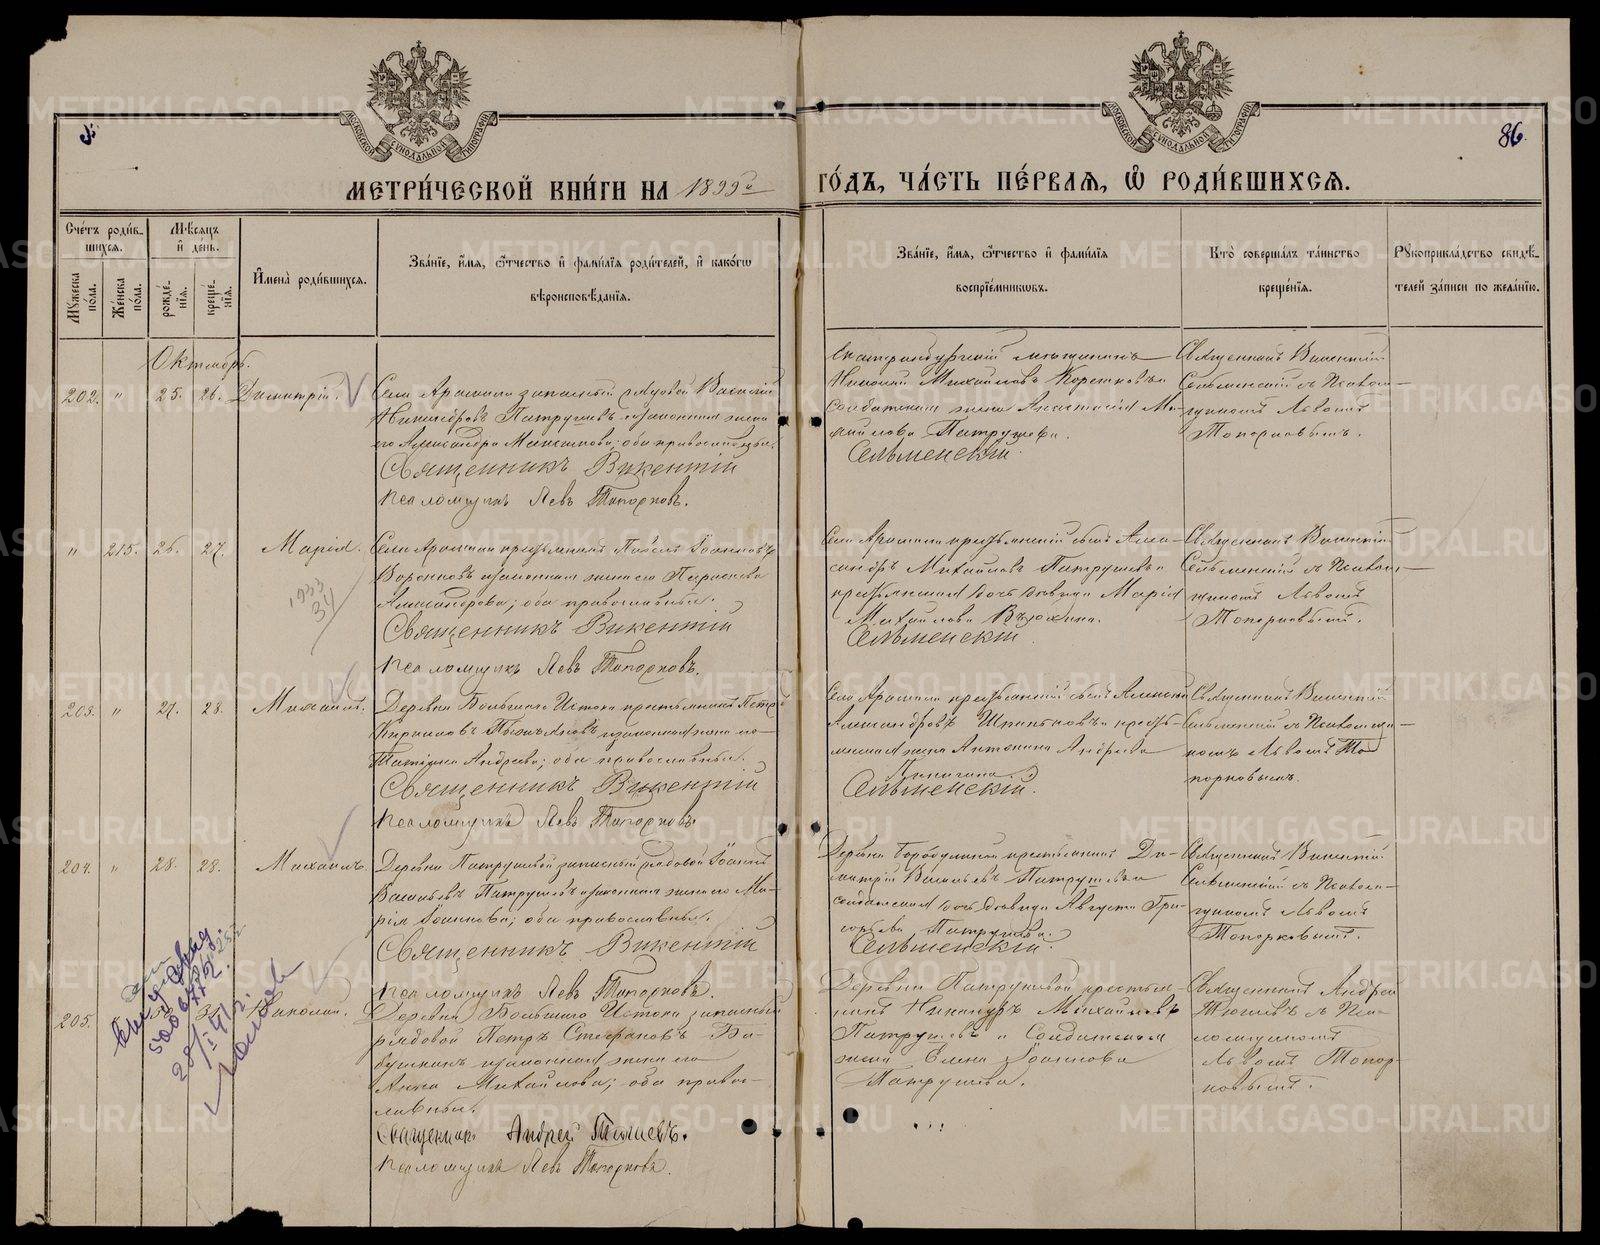 МОСКОВСКОЙ СѴНОДАЛЬНОЙ ТИПОГРАФІИ
МОСКОВСКОЙ СѴНОДАЛЬНОЙ ТИПОГРАФІИ
86.
МЕТРИ́ЧЕСКОЙ КНИ́ГИ НА 1899й ГО́ДЪ, ЧА́СТЬ ПЕ́РВАЯ, Ѽ РОДИ́ВШИХСЯ.
Сче́тъ роди́в-
шихся.
Мѣ́сяцъ
и҆ де́нь.
Мꙋ́жеска
по́ла.
Же́нска
по́ла.
рожде́-
нїя.
креще́-
нїя.
И҆мена̀ роди́вшихся.
Зва́нїе, и҆́мя, ѻ҆́тчество и҆ фами́лїя роди́телей, и҆ како́гѡ
вѣроисповѣ́данїя.
Зва́нїе, и҆́мя, ѻ҆́тчество и҆ фами́лїя
воспрїе́мникѡвъ.
Кто̀ соверша́лъ та́инство
креще́нїя.
Рꙋкоприкла́дство свидѣ́-
телей за́писи по жела́нїю.
Октябрь.
202. " 25. 26. Димитрій.
Села Арамили запасный рядовой Василій
Никандровъ Патрушевъ и законная жена
его Александра Максимова; оба православные.
Священникъ Викентій
Псаломщикъ Левъ Топорковъ.
Екатеринбургскій мѣщанинъ
Николай Михайловъ и
солдатская жена Анастасія Ми-
хайлова Патрушева.
Сельменскій.
Священникъ Викентій
Сельменскій съ Псалом-
щикомъ Львомъ
Топорковымъ.
" 215. 26. 27. Марія.
1933
34
Села Арамили крестьянинъ Павелъ Іоанновъ
Воронковъ и законная жена его Параскева
Александрова; оба православные.
Священникъ Викентій
Псаломщикъ Левъ Топорковъ.
Села Арамили крестьянскій сынъ Алек-
сандръ Михайловъ Патрушевъ и
крестьянская дочь дѣвица Марія
Михайлова
Сельменскій.
Священникъ Викентій
Сельменскій съ Псалом-
щикомъ Львомъ
Топорковымъ.
203. " 27. 28. Михаилъ.
Деревни Большаго Истока крестьянинъ Петръ
Кирилловъ и законная жена его
Татіана Андреева; оба православные.
Священникъ Викентій
Псаломщикъ Левъ Топорковъ.
Села Арамили крестьянскій сынъ Алексѣй
Александровъ и кресть-
янская жена Антонина Андреева
Сельменскій.
Священникъ Викентій
Сельменскій съ Псаломщи-
комъ Львомъ То-
порковымъ.
204. " 28. 28. Михаилъ.
Деревни Патрушевой запасный рядовой Іоаннъ
Васильевъ Патрушевъ и законная жена его Ма-
рія Іоаннова; оба православные.
Священникъ Викентій
Псаломщикъ Левъ Топорковъ.
Деревни Бородулиной крестьянинъ Ди-
митрій Васильевъ Патрушевъ и
солдатская дочь дѣвица Августа Гри-
горьева Патрушева.
Сельменскій.
Священникъ Викентій
Сельменскій съ Псалом-
щикомъ Львомъ
Топорковымъ.
205. Николай.
Деревни Большаго Истока запасный
рядовой Петръ Стефановъ Ба-
бушкинъ и законная жена его
Анна Михайлова; оба право-
славные.
Священникъ Андрей Тюшевъ.
Псаломщикъ Левъ Топорковъ.
Деревни Патрушевой крестья-
нинъ Никаноръ Михайловъ
Патрушевъ и Солдатская
жена Елена Іоаннова
Патрушева.
Священникъ Андрей
Тюшевъ съ Пса-
ломщикомъ
Львомъ Топор-
ковымъ.
METRIKI.GASO-URAL.RU